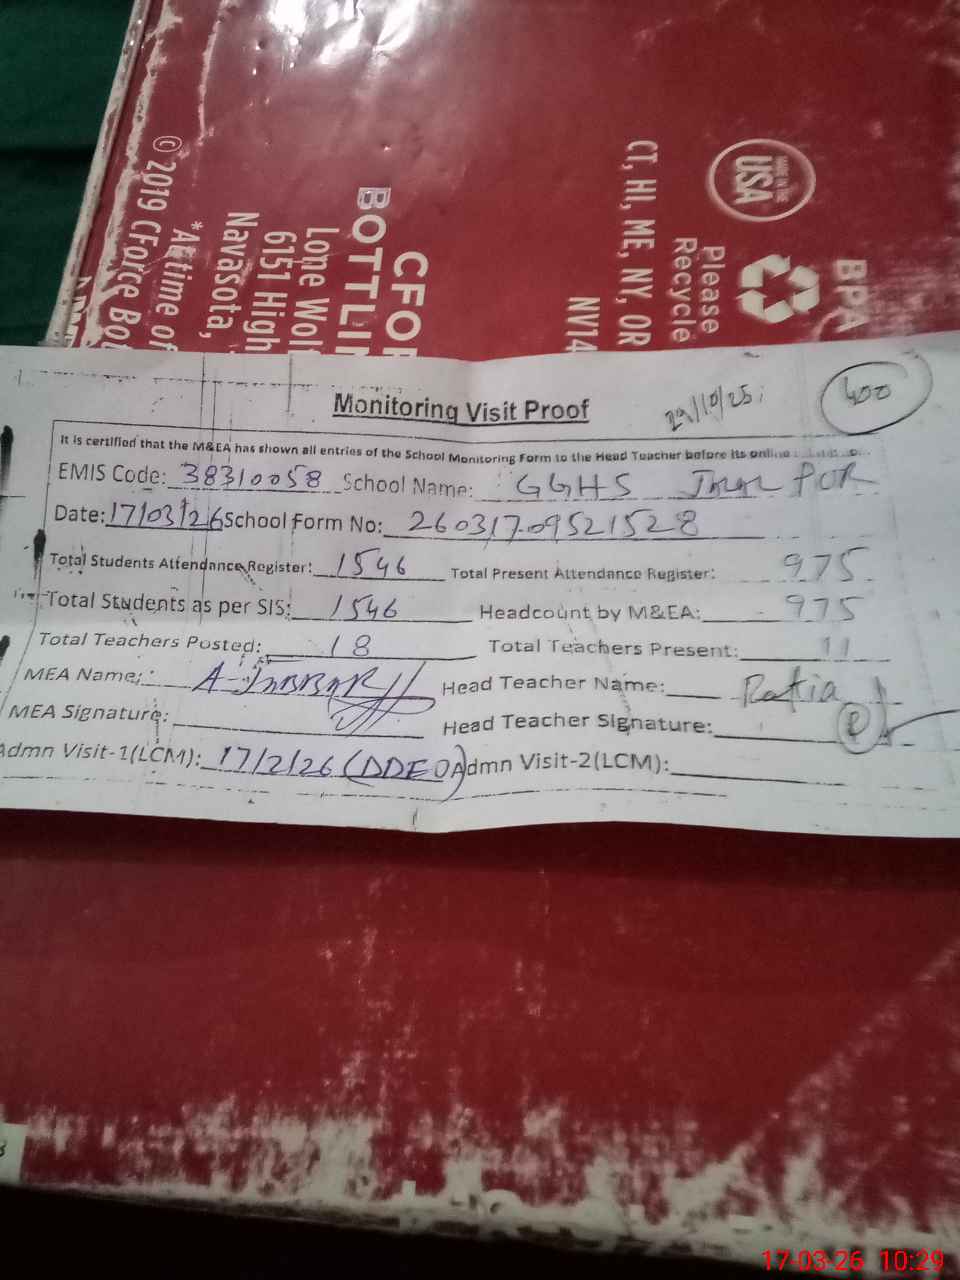 © 2019 CForce Bot
*At time of
Navasota,
6151 High
Lone Wolf
BOTTLIN
CFOR
NV14
CT, HI, ME, NY, OR
Please
Recycle
MADE IN THE
USA
BPA
Monitoring Visit Proof
29/10/25
400
It is certified that the M&EA has shown all entries of the School Monitoring Form to the Head Teacher before its online
EMIS Code: 38310058 School Name: GGHS
Date: 17/03/26 School Form No: 26031709521528
Total Students Attendance Register: 1546 Total Present Attendance Register: 975
Total Students as per SIS: 1546 Headcount by M&EA: 975
Total Teachers Posted: 18 Total Teachers Present: 11
MEA Name: A-Jabbar Head Teacher Name: Rafia
MEA Signature: Head Teacher Signature:
Admn Visit-1(LCM): 17/2/26 (DDEO) Admn Visit-2(LCM):
17-03-26 10:29